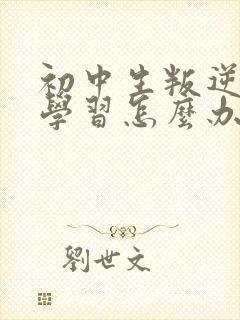 初中生叛逆
學習怎麼办
劉世文